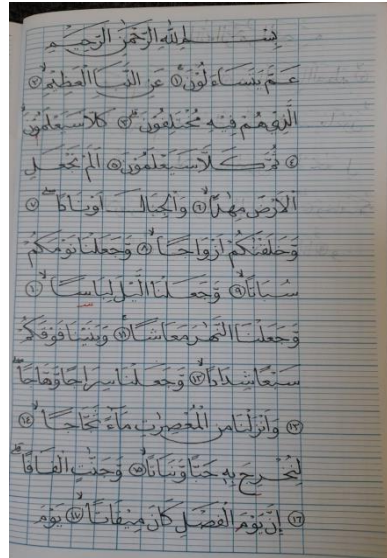 بِسْمِ اللهِ الرَّحْمٰنِ الرَّحِيْمِ
عَمَّ يَتَسَاءَلُوْنَ ① عَنِ النَّبَاِ الْعَظِيْمِ ②
الَّذِيْ هُمْ فِيْهِ مُخْتَلِفُوْنَ ③ كَلَّا سَيَعْلَمُوْنَ
④ ثُمَّ كَلَّا سَيَعْلَمُوْنَ ⑤ اَلَمْ نَجْعَلِ
الْاَرْضَ مِهٰدًا ⑥ وَّالْجِبَالَ اَوْتَادًا ⑦
وَّخَلَقْنٰكُمْ اَزْوَاجًا ⑧ وَّجَعَلْنَا نَوْمَكُمْ
سُبَاتًا ⑨ وَّجَعَلْنَا الَّيْلَ لِبَاسًا ⑩
وَّجَعَلْنَا النَّهَارَ مَعَاشًا ⑪ وَبَنَيْنَا فَوْقَكُمْ
سَبْعًا شِدَادًا ⑫ وَّجَعَلْنَا سِرَاجًا وَّهَّاجًا
⑬ وَّاَنْزَلْنَا مِنَ الْمُعْصِرٰتِ مَاءً ثَجَّاجًا ⑭
لِنُخْرِجَ بِهٖ حَبًّا وَّنَبَاتًا ⑮ وَّجَنّٰتٍ اَلْفَافًا
⑯ اِنَّ يَوْمَ الْفَصْلِ كَانَ مِيْقَاتًا ⑰ يَوْمَ